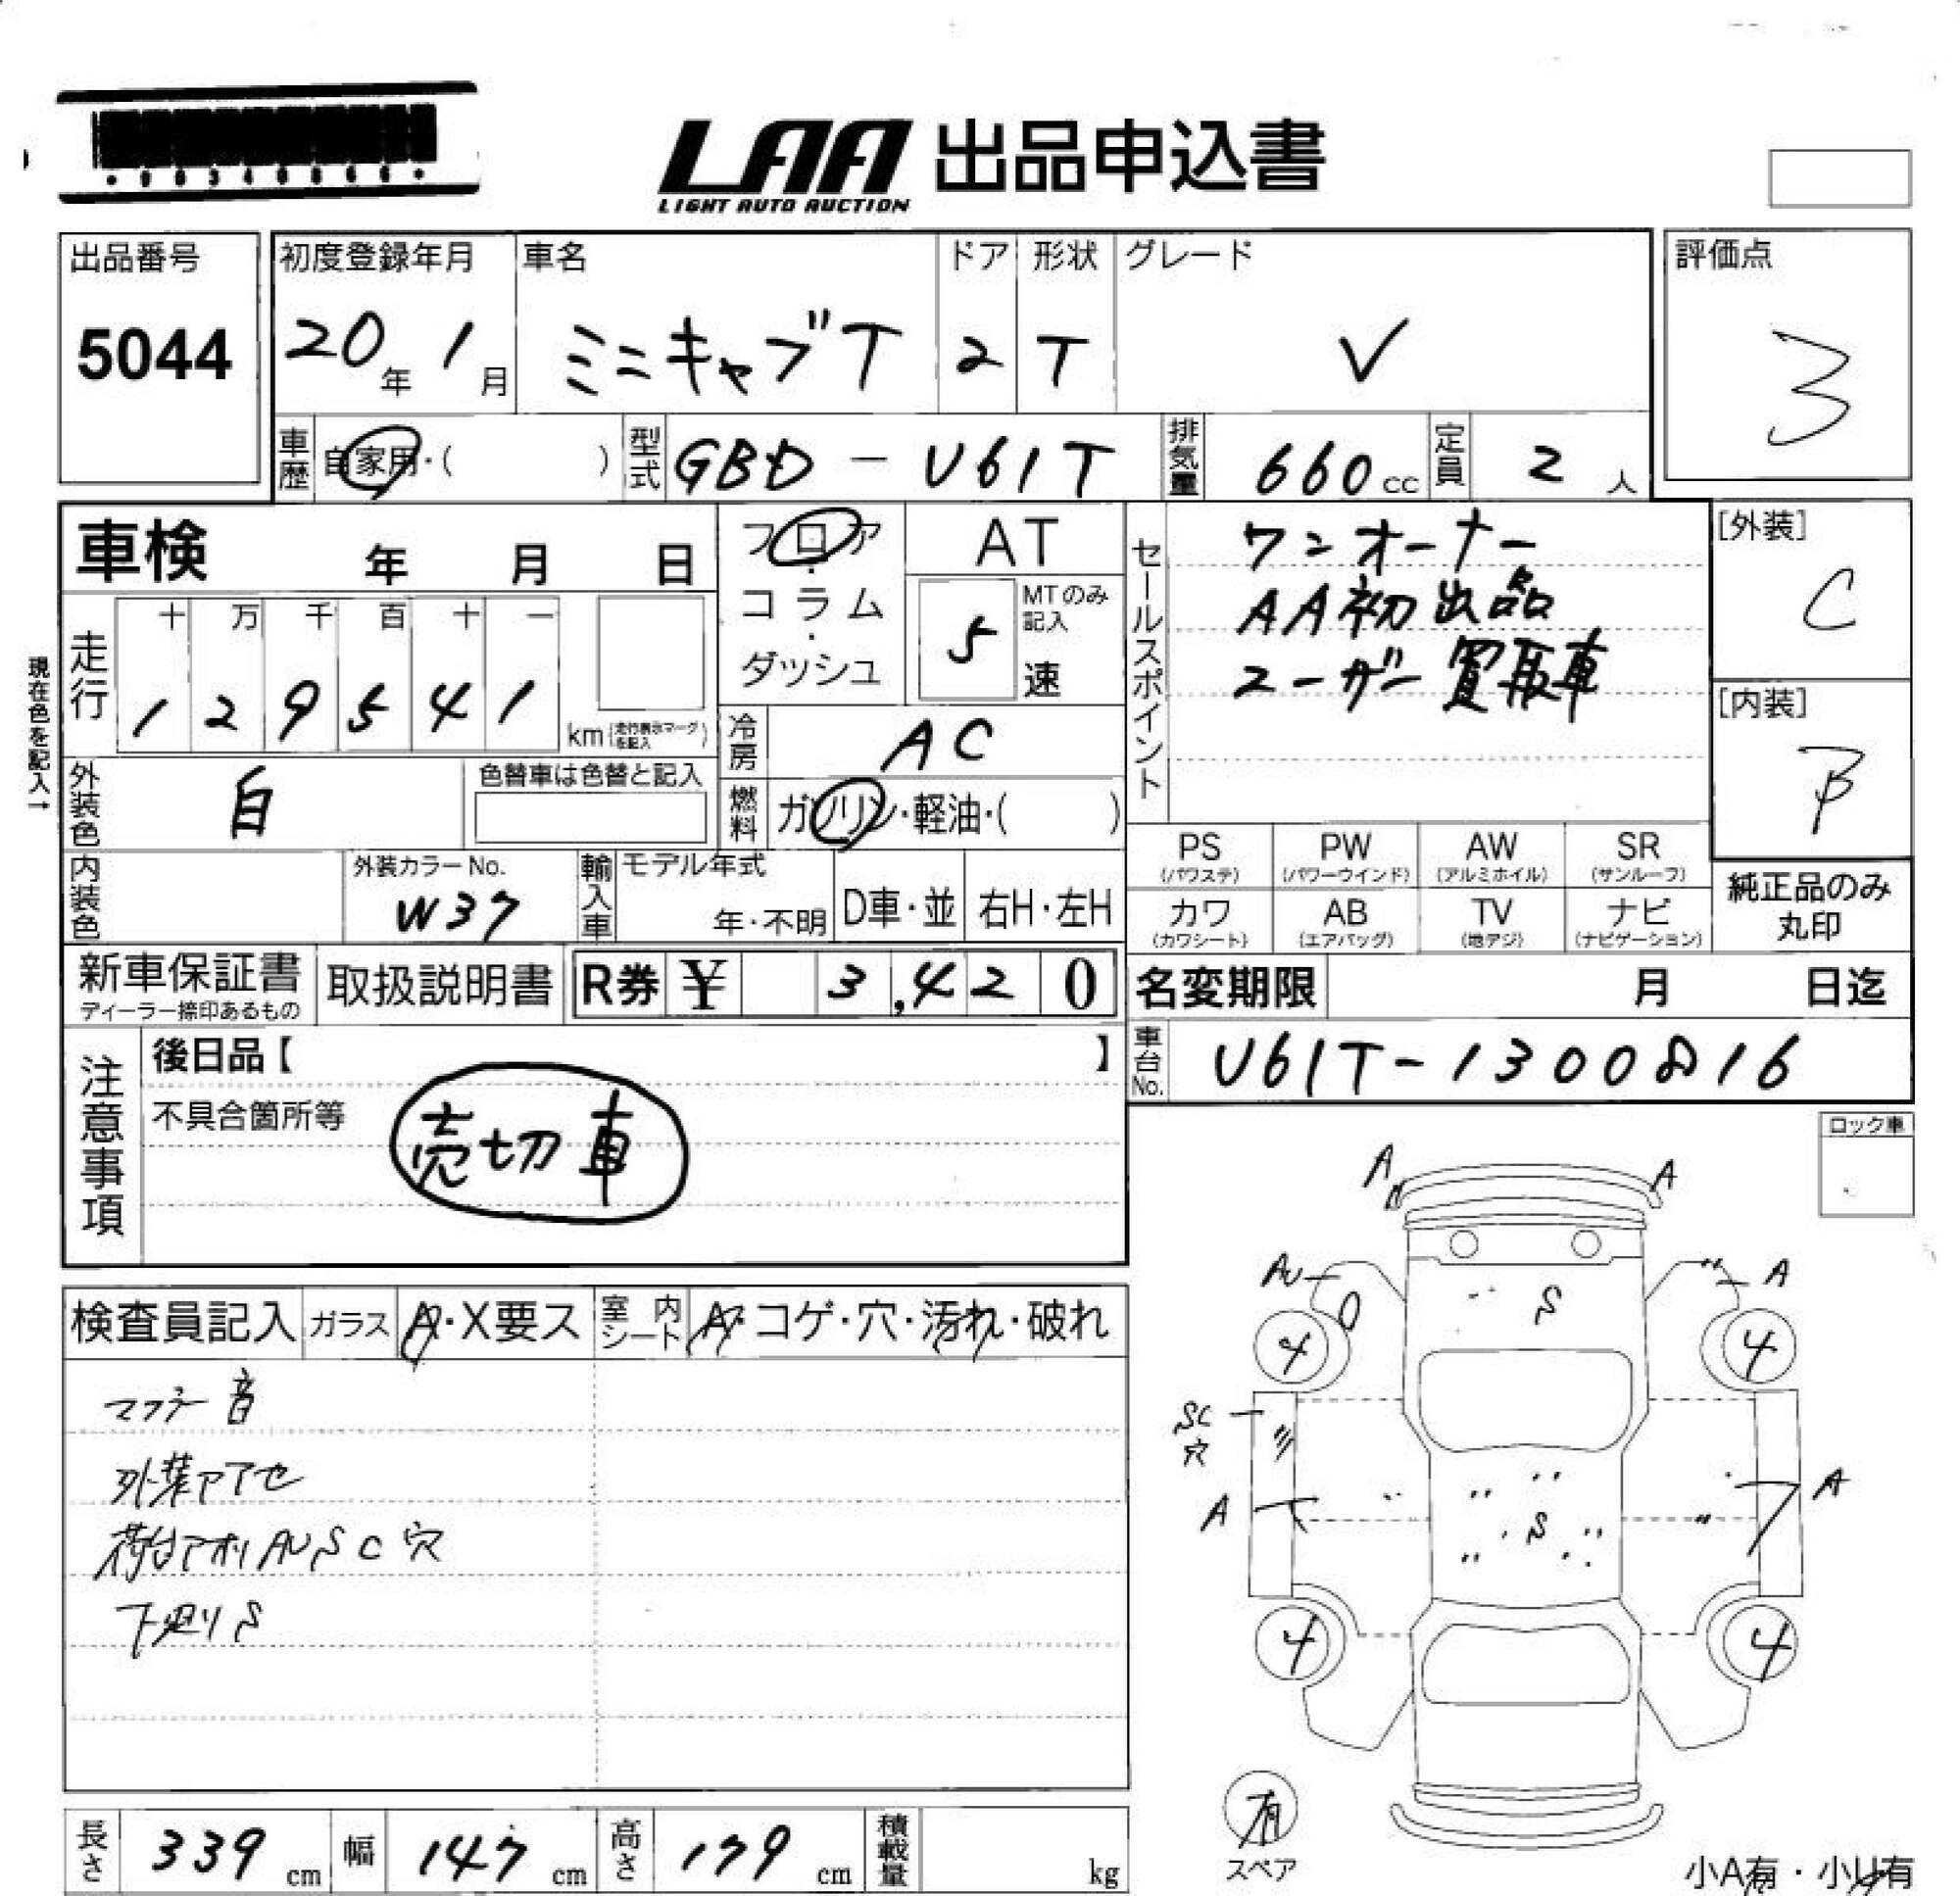 ・90340866・
LAA 出品申込書
LIGHT AUTO AUCTION
出品番号 初度登録年月 車名 ドア 形状 グレード 評価点
5044 20年 1月 ミニキャブT 2 T V 3
車歴 自家用・( ) 型式 GBD-U61T 排気量 660cc 定員 2人
車検 年 月 日
フロア・コラム・ダッシュ
AT
MTのみ記入
5速
セールスポイント
ワンオーナー
AA初出品
ユーザー買取車
[外装]
C
[内装]
B
現在色を記入→
走行 十 万 千 百 十 一
1 2 9 5 4 1 km(走行表示マークを記入)
冷房 AC
外装色 白 色替車は色替と記入
燃料 ガソリン・軽油・( )
内装色 外装カラーNo. W37
輸入車 モデル年式 年・不明 D車・並 右H・左H
PS (パワステ) PW (パワーウインド) AW (アルミホイル) SR (サンルーフ)
カワ (カワシート) AB (エアバッグ) TV (地デジ) ナビ (ナビゲーション)
純正品のみ
丸印
新車保証書 取扱説明書 R券 ¥ 3,420
ディーラー捺印あるもの
名変期限 月 日迄
車台No. U61T-1300816
注意事項
後日品【 】
不具合箇所等
売切車
ロック車
検査員記入 ガラス A・X要ス 室内シート A・コゲ・穴・汚れ・破れ
マフラー音
外装アアセ
荷台アオリ AU S C 穴
下廻りS
A A
AU A
S
4 4
SC
穴
A A
S
4 4
有
スペア
小A有・小U有
長さ 339 cm 幅 147 cm 高さ 179 cm 積載量 kg